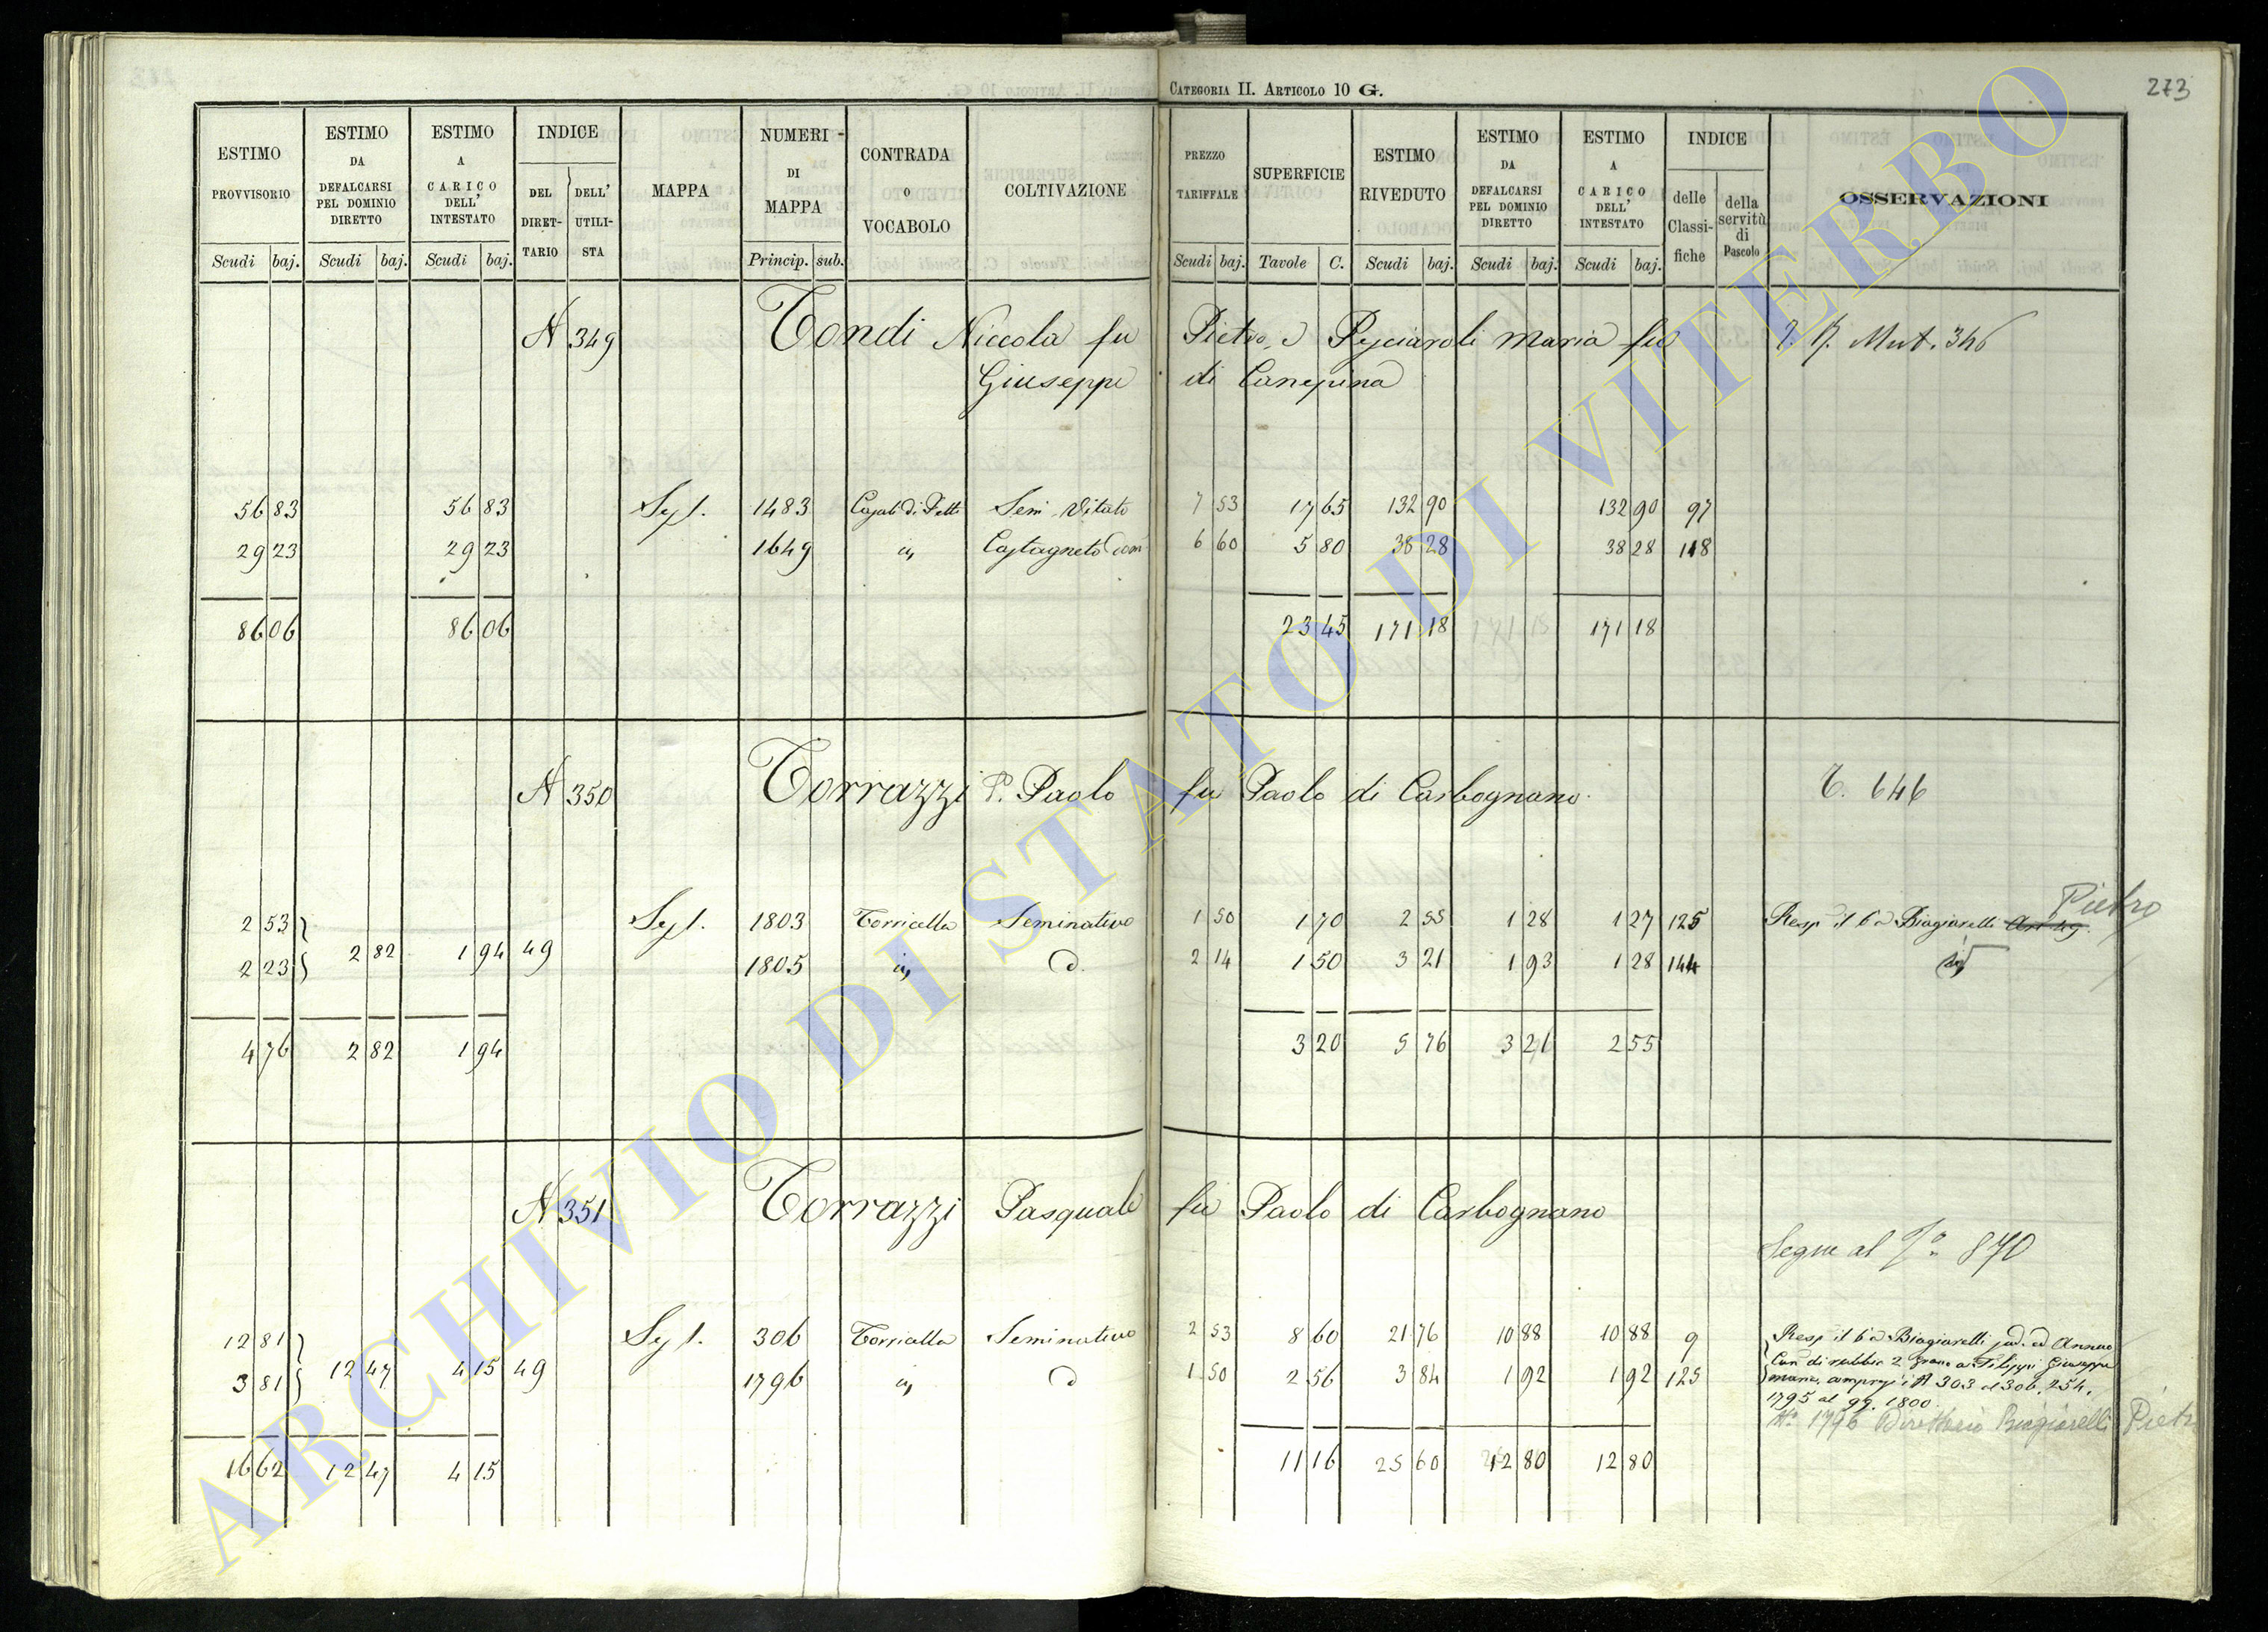 CATEGORIA II. ARTICOLO 10 G.
273
ESTIMO PROVVISORIO
ESTIMO DA DEFALCARSI PEL DOMINIO DIRETTO
ESTIMO A CARICO DELL' INTESTATO
INDICE
DEL DIRET-TARIO
DELL' UTILI-STA
MAPPA
NUMERI DI MAPPA
CONTRADA o VOCABOLO
COLTIVAZIONE
PREZZO TARIFFALE
SUPERFICIE
ESTIMO RIVEDUTO
ESTIMO DA DEFALCARSI PEL DOMINIO DIRETTO
ESTIMO A CARICO DELL' INTESTATO
INDICE
delle Classi-fiche
della servitù di Pascolo
OSSERVAZIONI
Scudi baj. Scudi baj. Scudi baj. Princip. sub. Scudi baj. Tavole C. Scudi baj. Scudi baj. Scudi baj.
N 349 Tondi Niccola fu Pietro, e Pesciaroli Maria fu Mut. 346
Giuseppe di Canepina
56 83 56 83 1483 Semi Vitato 7 53 17 65 132 90 132 90 97
29 23 29 23 1649 Castagneto 6 60 5 80 38 28 38 28 118
86 06 86 06 23 45 171 18 171 18 171 18
N 350 Torrazzi P. Paolo fu Paolo di Carbognano. T. 646
Pietro
2 53 1803 Torricella Seminativo 1 50 1 70 2 55 1 28 1 27 125 Resp il 6 a Biagiarelli Art 49.
2 23 2 82 1 94 49 1805 1 50 2 14 3 21 1 93 1 28 144
4 76 2 82 1 94 3 20 5 76 3 21 2 55
N 351 Torrazzi Pasquale fu Paolo di Carbognano
Segue al No 870
12 81 306 Torricella Seminativo 2 53 8 60 21 76 10 88 10 88 9 Resp il 6 a Biagiarelli ed Annuo
3 81 12 47 4 15 49 1796 1 50 2 56 3 84 1 92 1 92 125 Can di rubbie 2 grano a Filippi Giuseppe
303 al 306, 254,
1795 al 99. 1800.
No 1796 Direttario Biagiarelli Pietro
16 62 12 47 4 15 11 16 25 60 12 80 12 80
ARCHIVIO DI STATO DI VITERBO